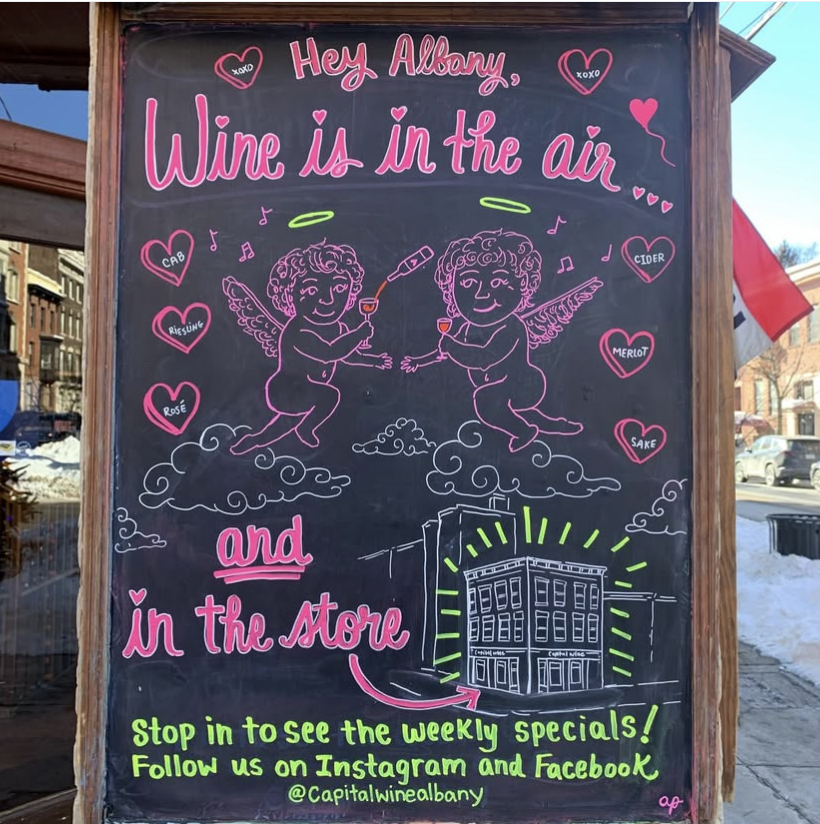 Hey Albany,
XOXO
XOXO
Wine is in the air...
CAB
CIDER
RIESLING
MERLOT
ROSÉ
SAKE
and
in the store
Capital Wine
Capital Wine
Stop in to see the weekly specials!
Follow us on Instagram and Facebook
@Capitalwinealbany
ap